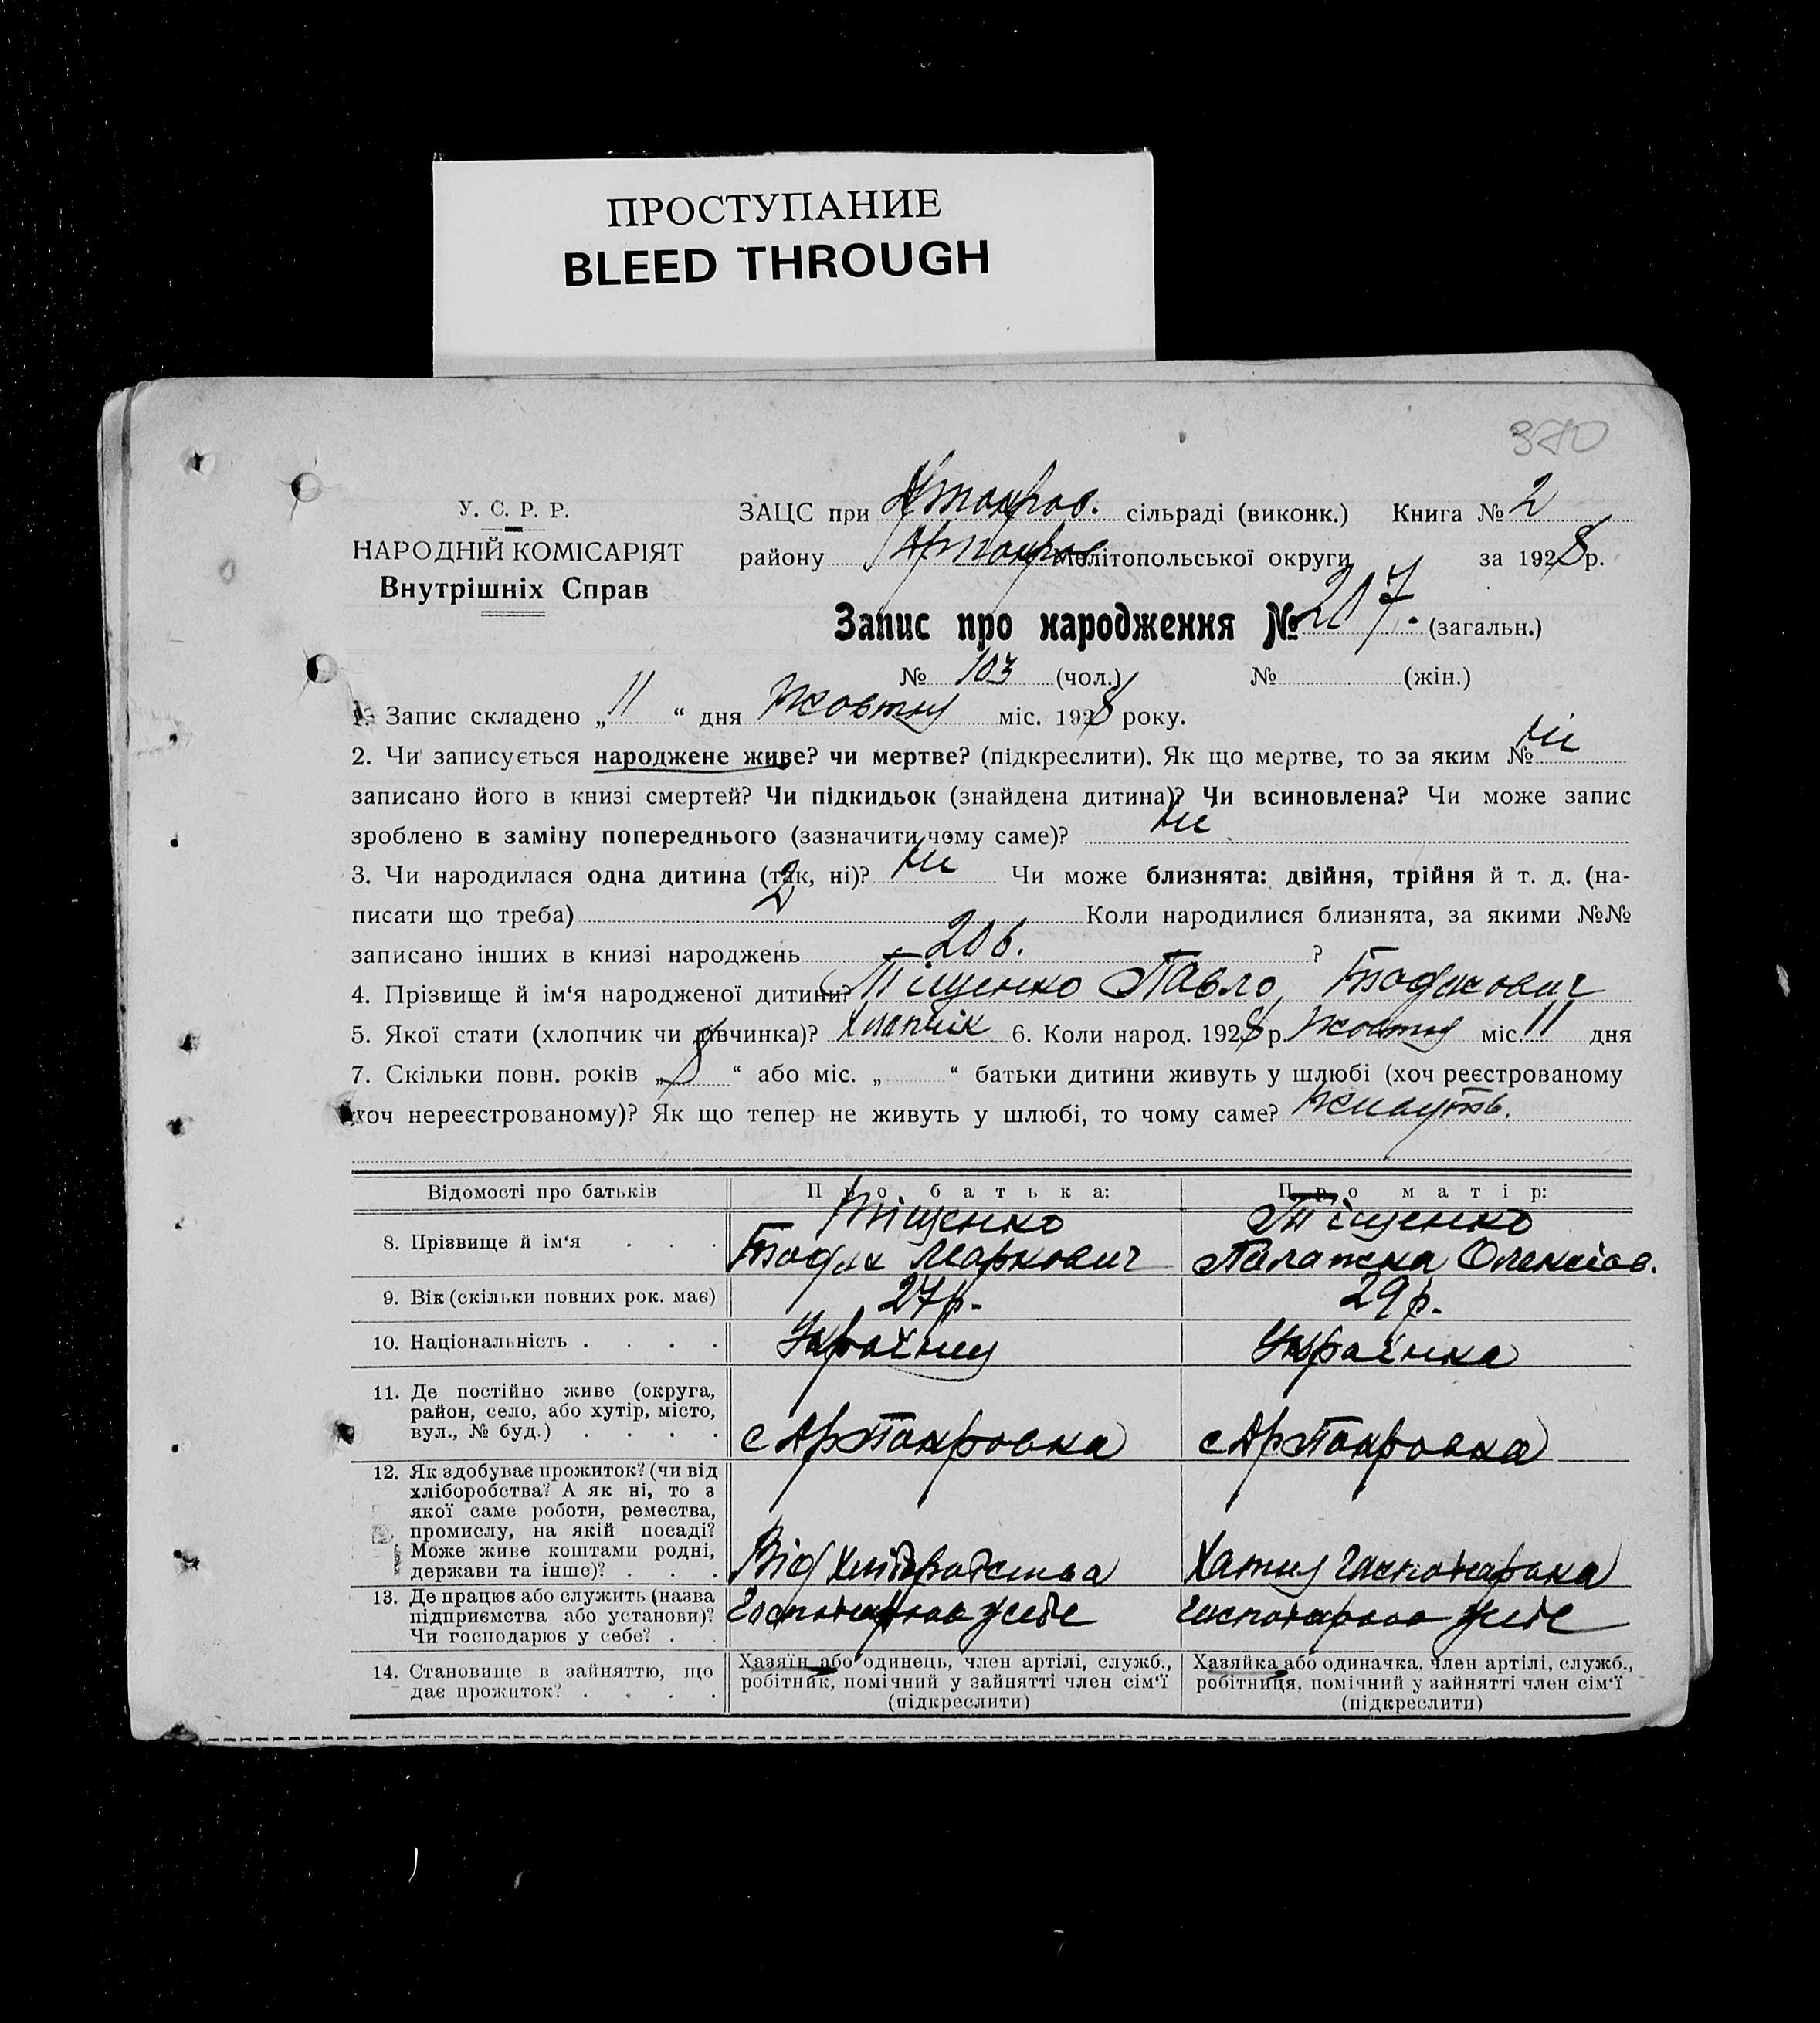 ПРОСТУПАНИЕ
BLEED THROUGH
370
У. С. Р. Р.
НАРОДНІЙ КОМІСАРІЯТ
Внутрішніх Справ
ЗАЦС при сільраді (виконк.) Книга № 2
району Мелітопольської округи за 1928 р.
Запис про народження № 207. (загальн.)
№ 103 (чол.) № (жін.)
1. Запис складено „11“ дня Жовтня міс. 1928 року.
2. Чи записується народжене живе? чи мертве? (підкреслити). Як що мертве, то за яким № ні
записано його в книзі смертей? Чи підкидьок (знайдена дитина)? Чи всиновлена? Чи може запис
зроблено в заміну попереднього (зазначити чому саме)? ні
3. Чи народилася одна дитина (так, ні)? ні Чи може близнята: двійня, трійня й т. д. (на-
писати що треба) 2 Коли народилися близнята, за якими №№
записано інших в книзі народжень 206. ?
4. Прізвище й ім‘я народженої дитини? Тіщенко Павло
5. Якої стати (хлопчик чи дівчинка)? Хлопчік 6. Коли народ. 1928 р. Жовтня міс. 11 дня
7. Скільки повн. років „8“ або міс. „ “ батьки дитини живуть у шлюбі (хоч реєстрованому
хоч нереєстрованому)? Як що тепер не живуть у шлюбі, то чому саме? Живуть.
Відомості про батьків Про батька: Про матір:
8. Прізвище й ім‘я . . . Тіщенко Тіщенко
Маркович Палажка Олексіїв.
9. Вік (скільки повних рок. має) 27 р. 29 р.
10. Національність . . . . Українец Українка
11. Де постійно живе (округа,
район, село, або хутір, місто,
вул., № буд.) . . . . с АрПокровка с АрПокровка
12. Як здобуває прожиток? (чи від
хліборобства? А як ні, то з
якої саме роботи, ремества,
промислу, на якій посаді?
Може живе коштами родні,
держави та інше)? . . . Від хліборобства Хатня
13. Де працює або служить (назва
підприємства або установи)?
Чи господарює у себе? . . у себе у себе
14. Становище в зайняттю, що
дає прожиток? . . . .
Хазяїн або одинець, член артілі, служб.,
робітник, помічний у зайнятті член сім‘ї
(підкреслити)
Хазяйка або одиначка, член артілі, служб.,
робітниця, помічний у зайнятті член сім‘ї
(підкреслити)